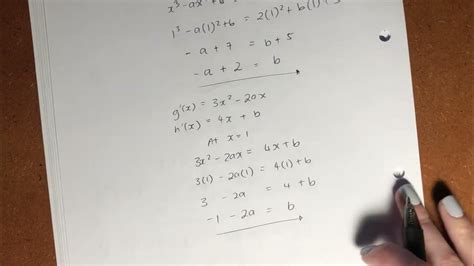 x³ - ax²
1³ - a(1)² + 6 = 2(1)² + b(1) +
- a + 7 = b + 5
- a + 2 = b
g'(x) = 3x² - 2ax
h'(x) = 4x + b
At x = 1
3x² - 2ax = 4x + b
3(1) - 2a(1) = 4(1) + b
3 - 2a = 4 + b
-1 - 2a = b